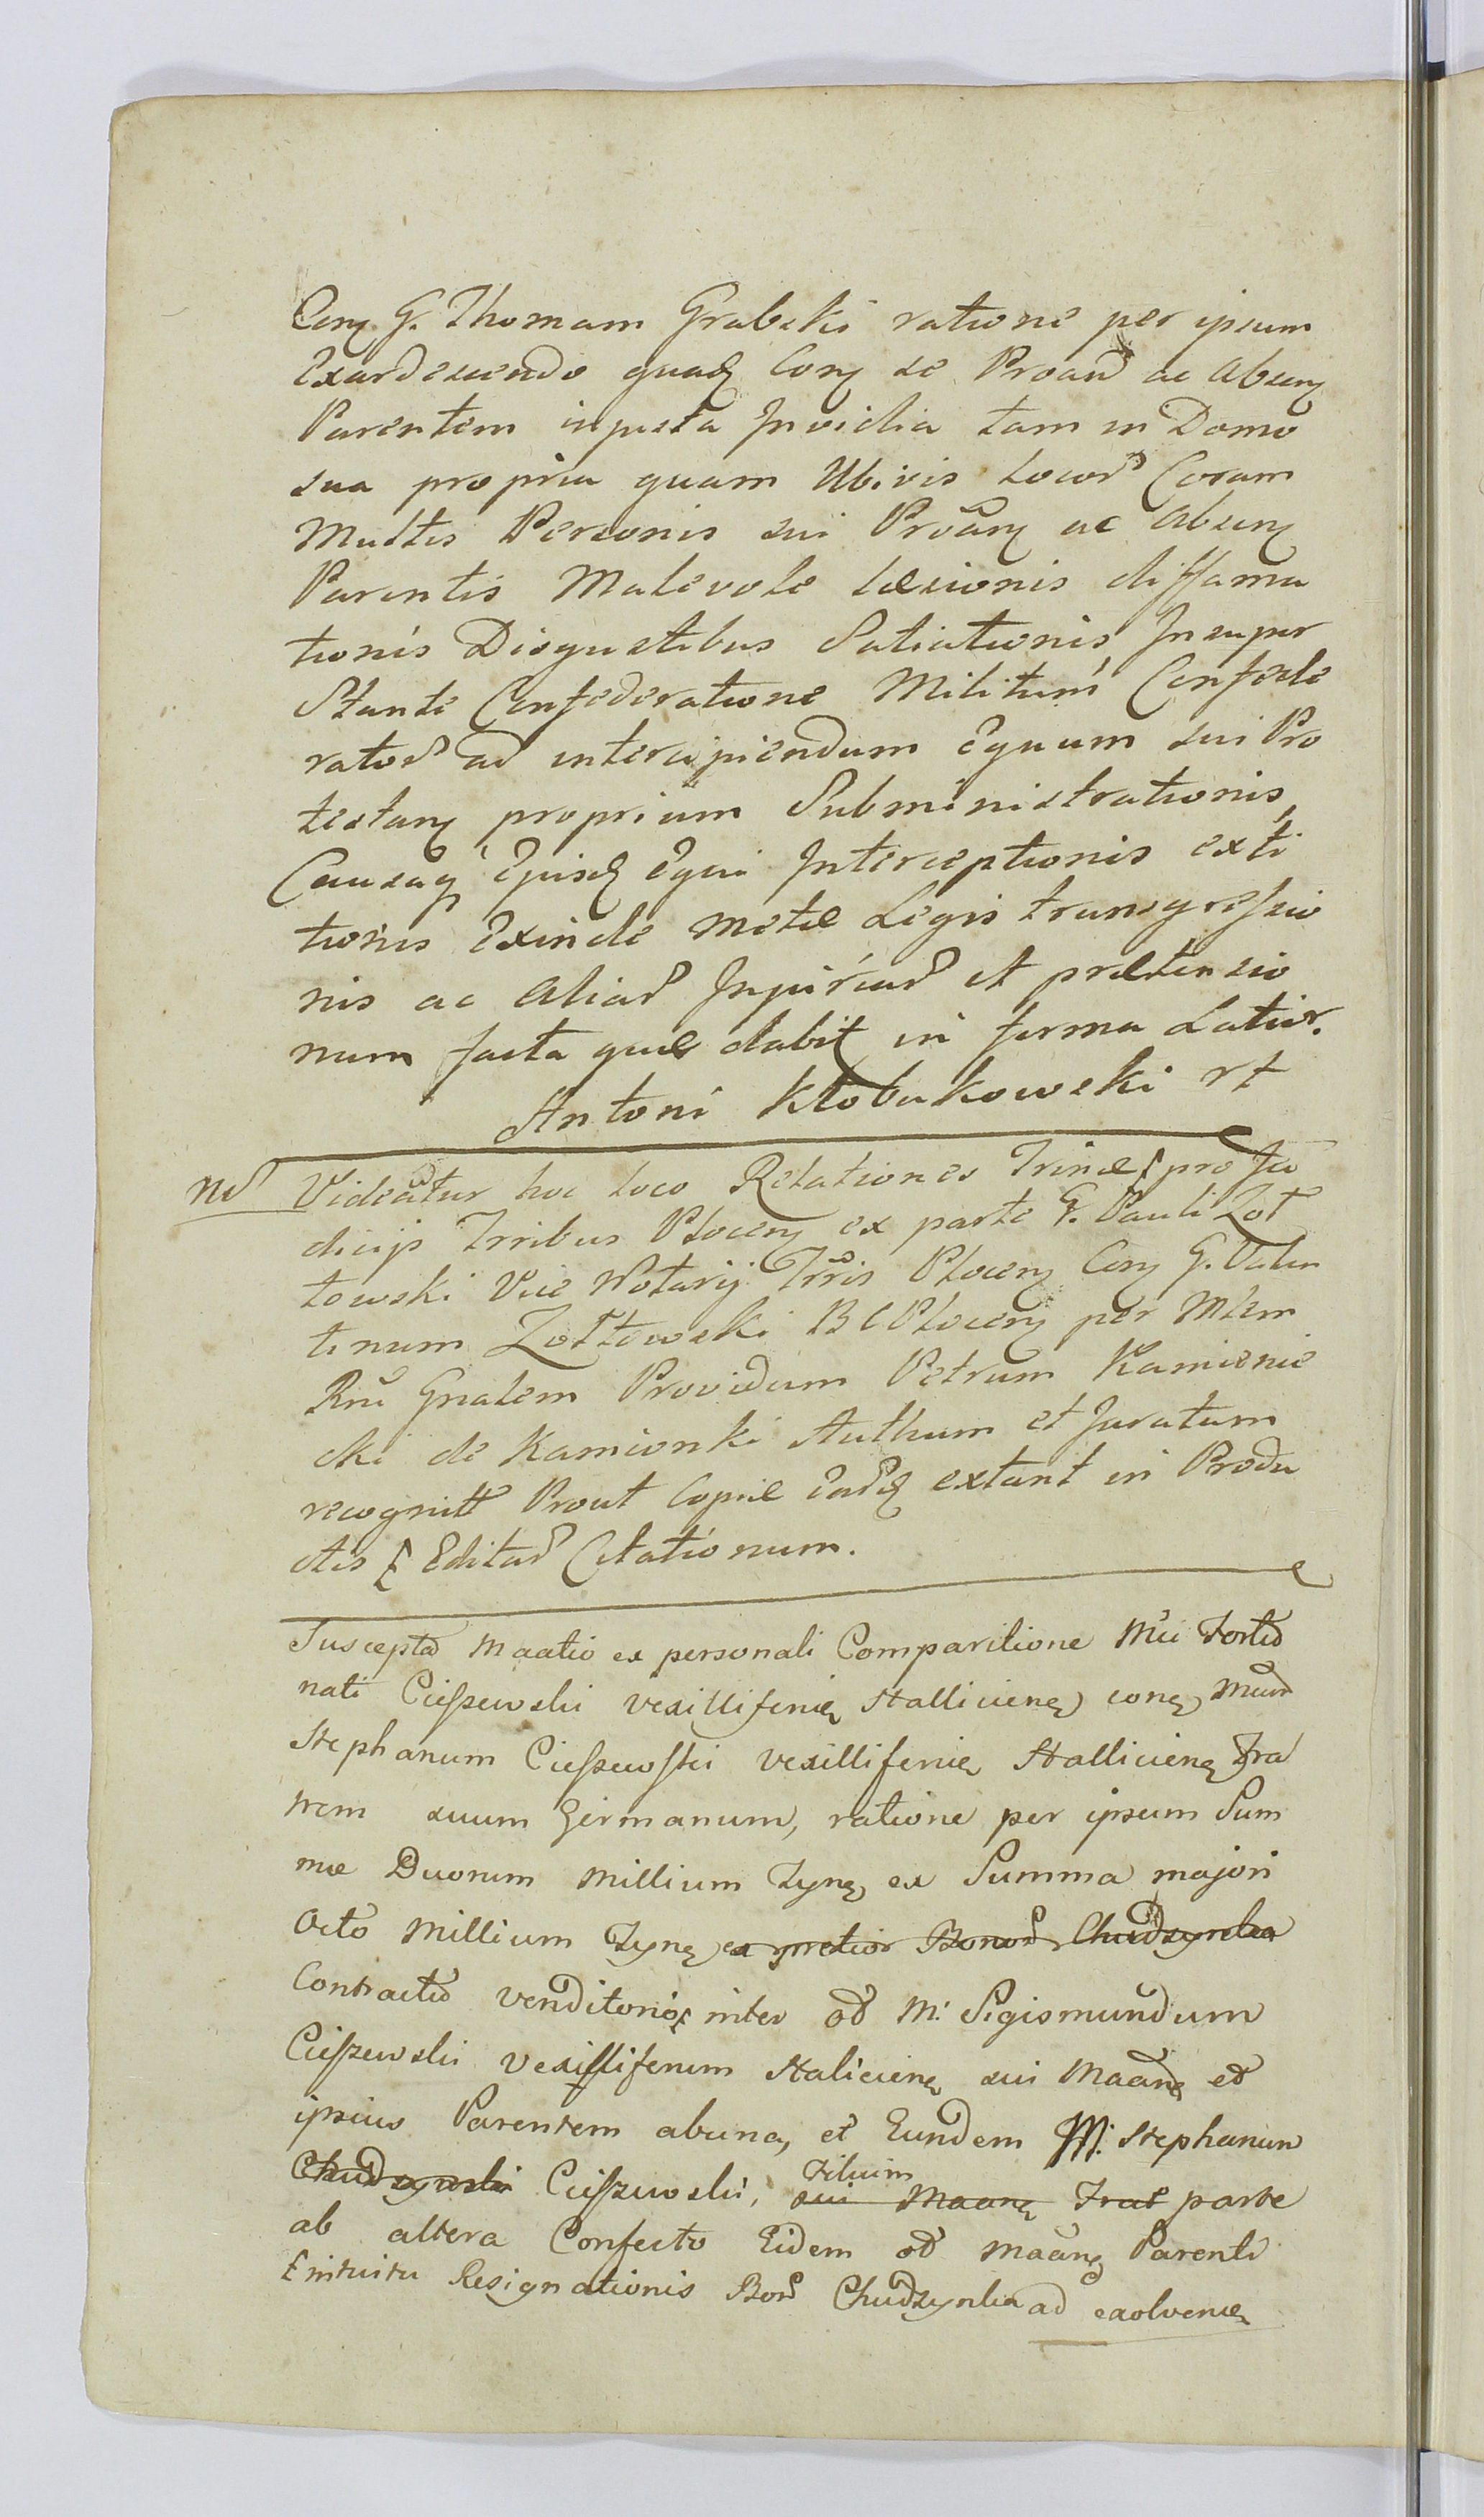 Con G. Thomam Grabski ratione per ipsum
Exardescendo quaq Con se Proan ac absen
Parentem injusta Jnvidia tam in Domo
sua propria quam Ubivis Locor Coram
Multis Personis sui Proan ac absen
Parentis Malevole læsionis diffama
tionis Disgustibus Satiationis Jnsuper
Stante Confederatione Militum Confede
rator ad intercipiendum Equum sui Pro
testan proprium Subministrationis,
Causaq Ejusd Equi Jnterceptionis exti
tionis Exinde Metæ Legis transgressio
nis ac aliar Jnjuriar et prætensio
num facta quæ dabit in forma Latior.
Antoni Kłobukowski rt
Nd Videatur hoc loco Relationes Trinæ pro Ju
dicijs Trribus Plocen ex parte G. Pauli Zoł
towski Vice Notarij Trris Plocen Con G. Valen
tinum Zołtowski BCPlocen per Mlem
Rni Gnalem Providum Petrum Kamienie
cki de Kamionki Authum et Juratum
recognitt Prout Copiæ Eard extant in Produ
ctis Editar Citationum.
Suscepta Maatio ex personali Comparitione Mci Fortu
nati Cieszewski vexilliferic Halliciens con Mcum
Stephanum Cieszewski vexilliferic Halliciens Fra
trem suum Germanum, ratione per ipsum Sum
mæ Duorum Millium Tyn ex Summa majori
Octo Millium Tyn ex pretior Bonor Chudzynka
Contractu venditorio inter od M. Sigismundum
Cieszewski vexilliferum Haliciens sui Maan et
ipsius Parentem absna, et Eundem M. Stephanum
Chudzynski Cieszewski, sui Maans Filium Frat parte
ab altera Confecto Eidem od Maans Parenti
intuitu Resignationis Bonr Chudzynka ad exolven